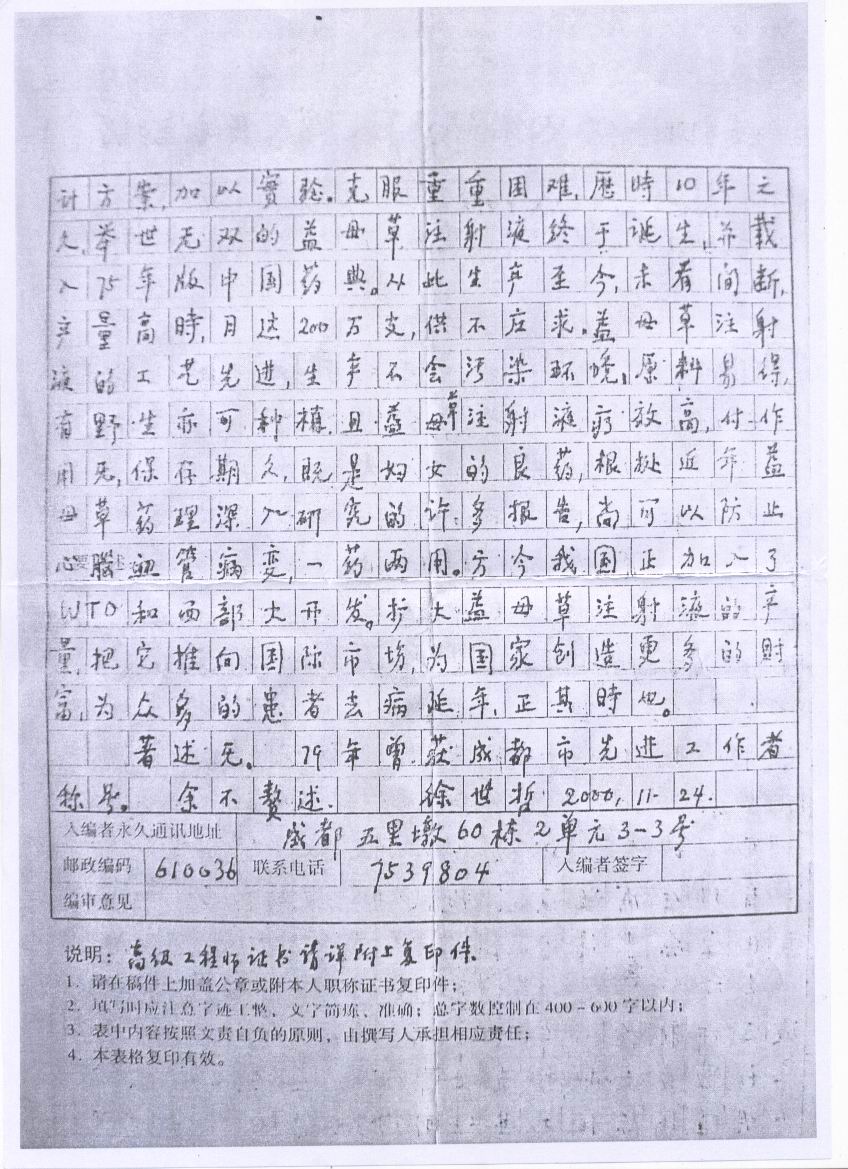 计方案,加以實驗。克服重重困难,歷時10年之
久,举世无双的益母草注射液终于诞生,并载
入75年版中国药典。从此生产至今,未有间断,
产量高時,月达200万支,供不应求。益母草注射
液的工艺先进,生产不会污染环境,原料易得,
有野生亦可种植.且益母草注射液疗效高,付作
用无,保存期久,既是妇女的良药,根据近年益
母草药理深入研究的许多报告,尚可以防止
心腦血管病变,一药两用。方今我国正加入了
WTO和西部大开发。扩大益母草注射液的产
量,把它推向国际市场,为国家创造更多的财
富,为众多的患者去病延年,正其時也。
著述无。79年曾获成都市先进工作者
称号。余不赘述.徐世哲2000,11-24.
入编者永久通讯地址 成都五里墩60栋2单元3-3号
邮政编码 610036 联系电话 7539804 入编者签字
编审意见
说明:高级工程师证书请详附上复印件.
1. 请在稿件上加盖公章或附本人职称证书复印件;
2. 填写时应注意字迹工整、文字简炼、准确;总字数控制在400-600字以内;
3. 表中内容按照文责自负的原则,由撰写人承担相应责任;
4. 本表格复印有效。